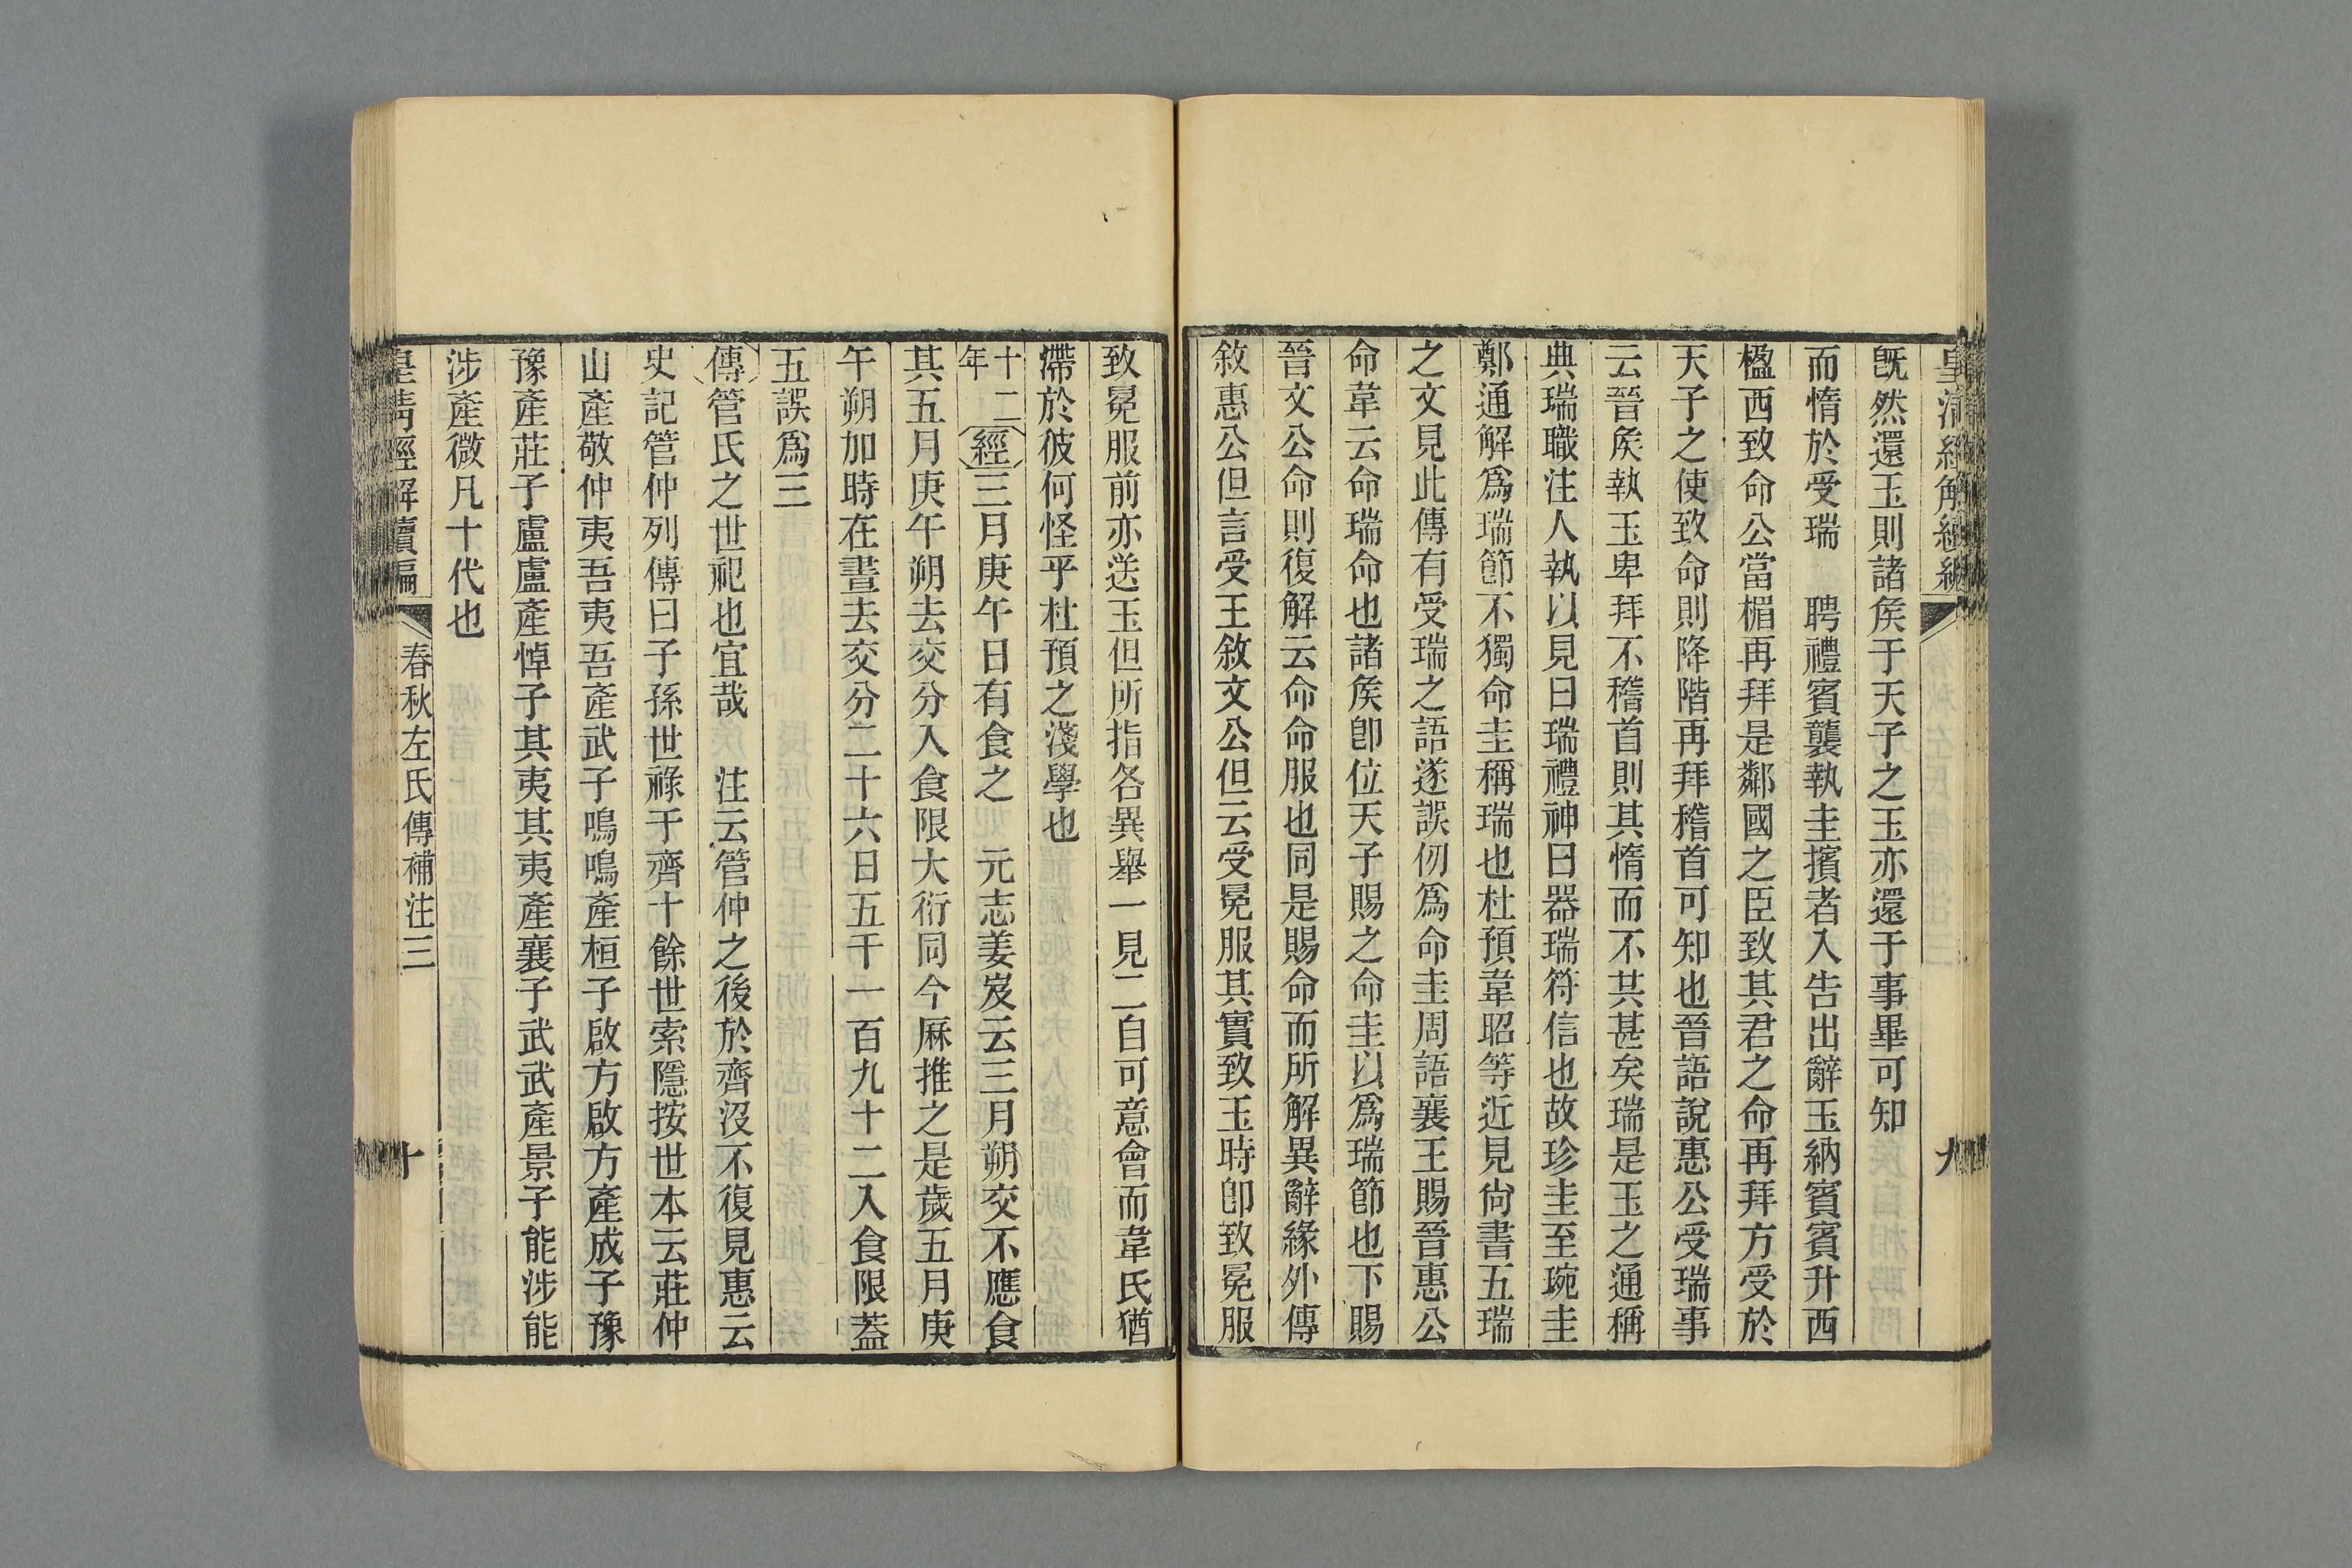 皇清經解續編
九
旣然還玉則諸矦于天子之玉亦還于事畢可知
而惰於受瑞　聘禮賓襲執圭擯者入告出辭玉納賓賓升西
楹西致命公當楣再拜是鄰國之臣致其君之命再拜方受於
天子之使致命則降階再拜稽首可知也晉語說惠公受瑞事
云晉矦執玉卑拜不稽首則其惰而不共甚矣瑞是玉之通稱
典瑞職注人執以見曰瑞禮神曰器瑞符信也故珍圭至琬圭
鄭通解爲瑞節不獨命圭稱瑞也杜預韋昭等近見尙書五瑞
之文見此傳有受瑞之語遂誤仞爲命圭周語襄王賜晉惠公
命韋云命瑞命也諸矦卽位天子賜之命圭以爲瑞節也下賜
晉文公命則復解云命命服也同是賜命而所解異辭緣外傳
敘惠公但言受玉敘文公但云受冕服其實致玉時卽致冕服
致冕服前亦送玉但所指各異舉一見二自可意會而韋氏猶
滯於彼何怪乎杜預之淺學也
十二年經三月庚午日有食之　元志姜岌云三月朔交不應食
其五月庚午朔去交分入食限大衍同今厤推之是歲五月庚
午朔加時在晝去交分二十六日五千一百九十二入食限葢
五誤爲三
傳管氏之世祀也宜哉　注云管仲之後於齊沒不復見惠云
史記管仲列傳曰子孫世祿于齊十餘世索隱按世本云莊仲
山產敬仲夷吾夷吾產武子鳴鳴產桓子啟方啟方產成子豫
豫產莊子盧盧產悼子其夷其夷產襄子武武產景子能涉能
涉產微凡十代也
皇淸經解續編
春秋左氏傳補注三
十